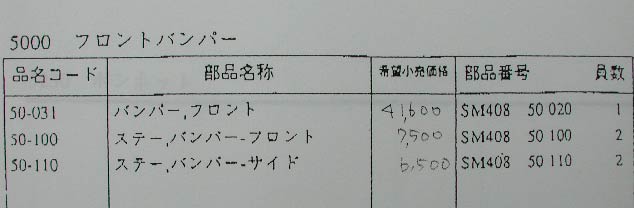 5000 フロントバンパー
品名コード 部品名称 希望小売価格 部品番号 員数
50-031 バンパー,フロント 41,600 SM408 50 020 1
50-100 ステー,バンパー-フロント 7,500 SM408 50 100 2
50-110 ステー,バンパー-サイド 6,500 SM408 50 110 2